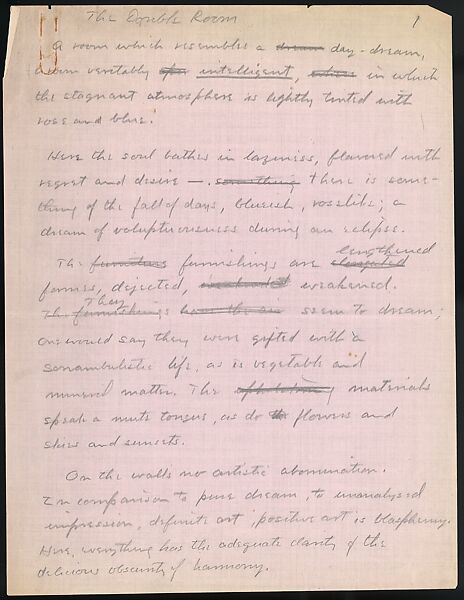 The Double Room
1
A room which resembles a dream day-dream,
a room veritably intelligent, in which
the stagnant atmosphere is lightly tinted with
rose and blue.
Here the soul bathes in laziness, flavored with
regret and desire — . something there is some-
thing of the fall of days, blueish, rosslike; a
dream of voluptuousness during an eclipse.
lengthened
The furniture furnishings are elongated
forms, dejected, weakened.
They
The furnishings seem to dream;
one would say they were gifted with a
somnambulistic life, as is vegetable and
mineral matter. The materials
speak a mute tongue, as do flowers and
skies and sunsets.
On the walls no artistic abomination.
In comparison to pure dream, to unanalysed
impression, definite art, positive art is blasphemy.
Here, everything has the adequate clarity & the
delicious obscurity of harmony.